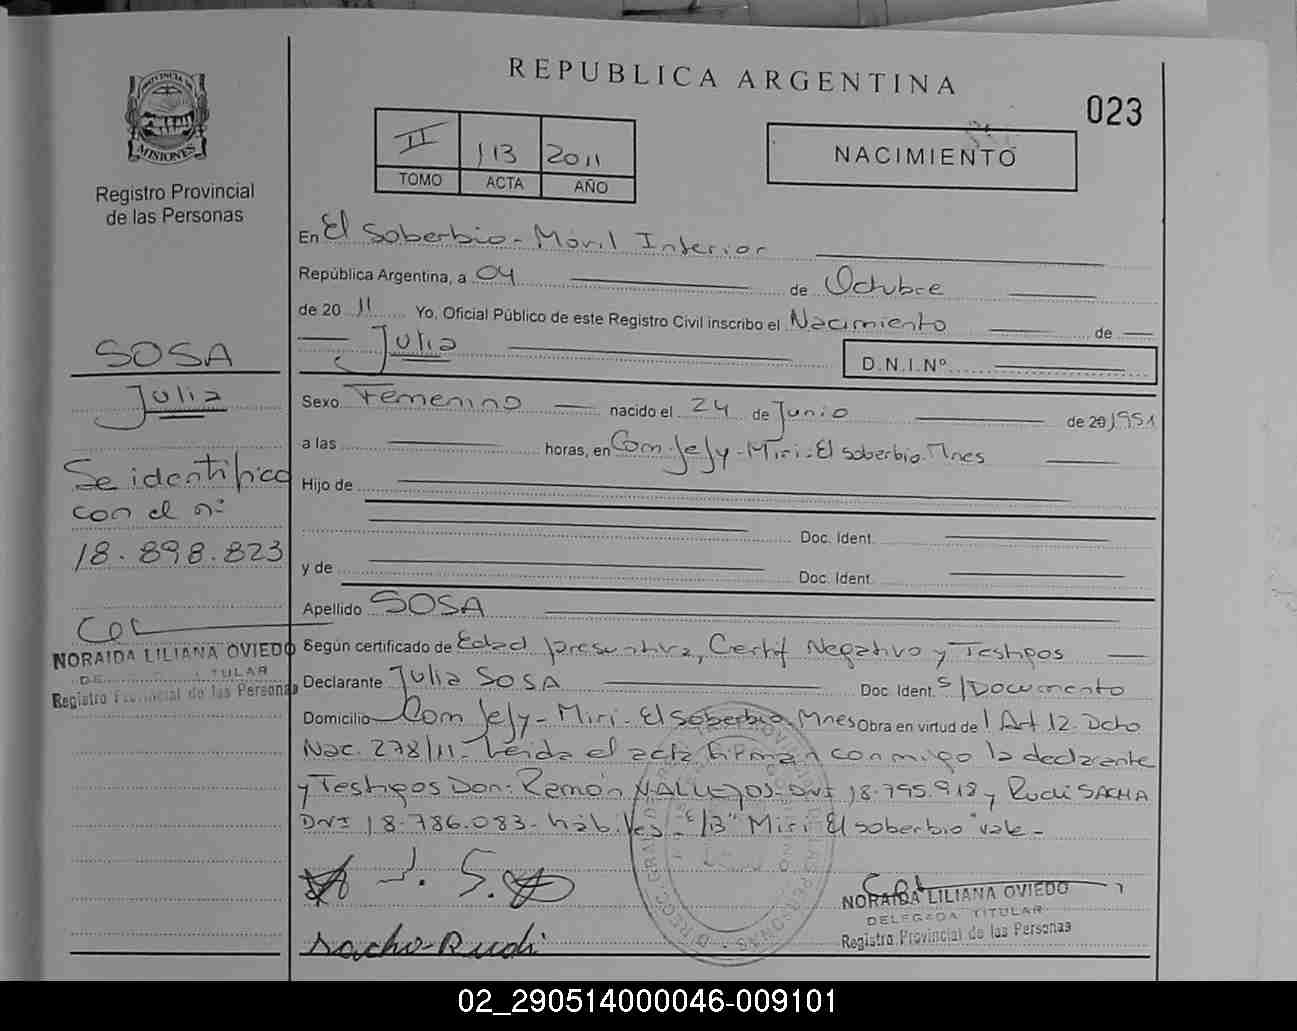 REPUBLICA ARGENTINA
023
PROVINCIA DE
MISIONES
Registro Provincial
de las Personas
II 113 2011
TOMO ACTA AÑO
NACIMIENTO
En El Soberbio - Móvil Interior
República Argentina, a 04 de Octubre
de 20 11 Yo, Oficial Público de este Registro Civil inscribo el Nacimiento de
Julia
D.N.I.Nº
SOSA
Julia
Se identifico
con el nº
18.898.823
NORAIDA LILIANA OVIEDO
TULAR
Registro Provincial de las Personas
Sexo Femenino nacido el 24 de Junio de 20 1951
a las horas, en Com. Jejy - Miri - El Soberbio. Mnes
Hijo de
Doc. Ident.
y de Doc. Ident.
Apellido SOSA
Según certificado de Edad presuntiva, Certif Negativo y Testigos
Declarante Julia SOSA Doc. Ident. S/Documento
Domicilio Com Jejy - Miri - El Soberbio - Mnes Obra en virtud de l Art 12. Dcto
Nac. 278/11 - Leida el acta firman conmigo la declarante
y Testigos Don: Ramón VALLEJOS - DNI 18.795.918 y Rudi SACHA
DNI 18.786.083 - hábiles - E/B" Miri El Soberbio" vale -
J. S.
sacho-Rudi
NORAIDA LILIANA OVIEDO
DELEGADA TITULAR
Registro Provincial de las Personas
02_290514000046-009101